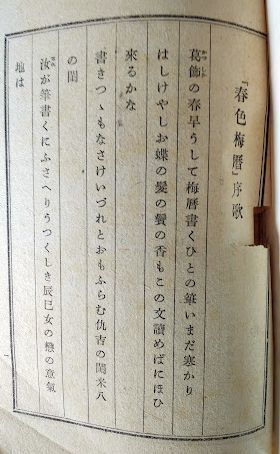 『春色梅暦』序歌
葛飾の春早うして梅暦書くひとの硯いまだ寒かり
はしけやしお蝶の髪の鬢の香もこの文讀めばにほひ
來るかな
書きつゝもなさけいづれとおもふらむ仇吉の閨米八
の閨
汝が筆書くにふさへりうつくしき辰巳女の戀の意氣
地は